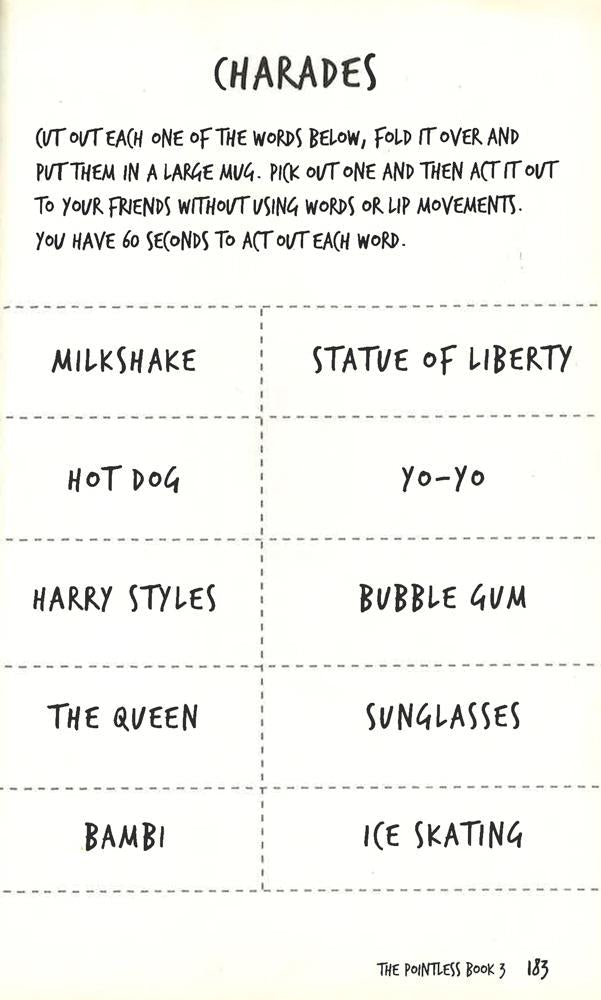 CHARADES
CUT OUT EACH ONE OF THE WORDS BELOW, FOLD IT OVER AND
PUT THEM IN A LARGE MUG. PICK OUT ONE AND THEN ACT IT OUT
TO YOUR FRIENDS WITHOUT USING WORDS OR LIP MOVEMENTS.
YOU HAVE 60 SECONDS TO ACT OUT EACH WORD.
MILKSHAKE STATUE OF LIBERTY
HOT DOG YO-YO
HARRY STYLES BUBBLE GUM
THE QUEEN SUNGLASSES
BAMBI ICE SKATING
THE POINTLESS BOOK 3 183